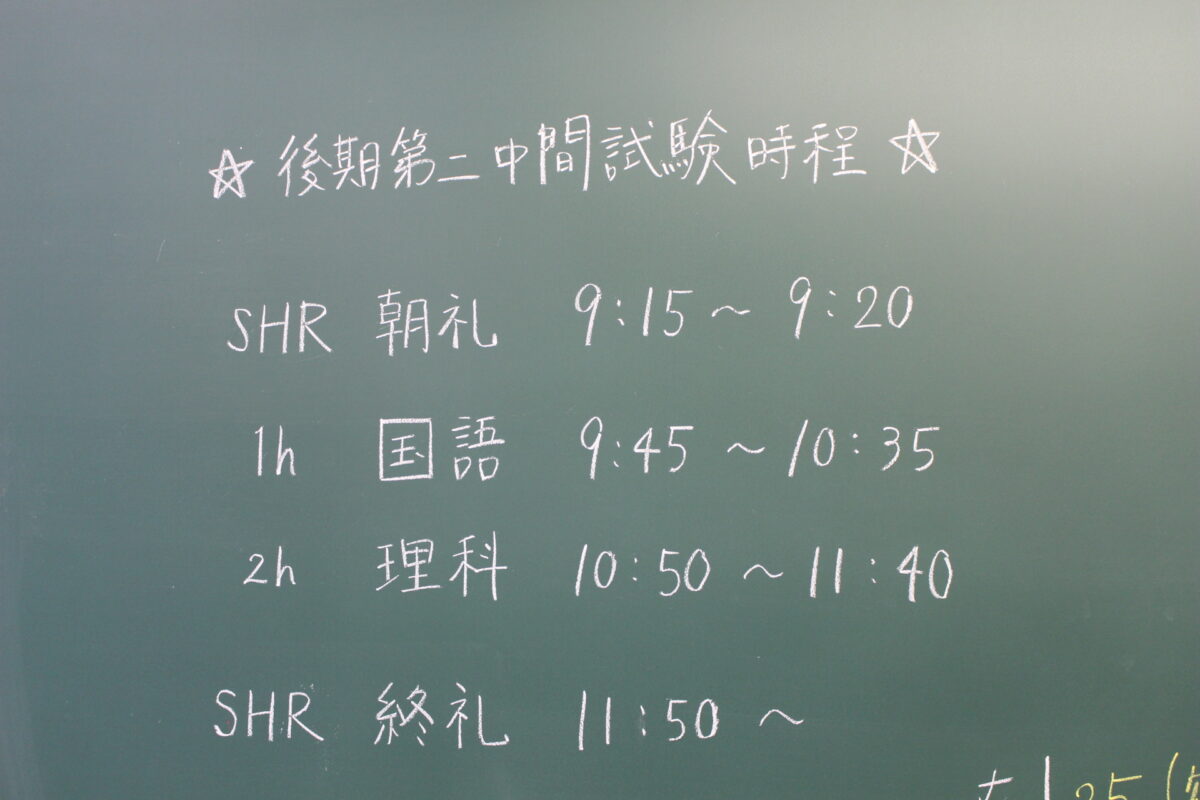 ☆ 後期第二中間試験時程 ☆
SHR 朝礼 9:15~9:20
1h 国語 9:45~10:35
2h 理科 10:50~11:40
SHR 終礼 11:50~
25